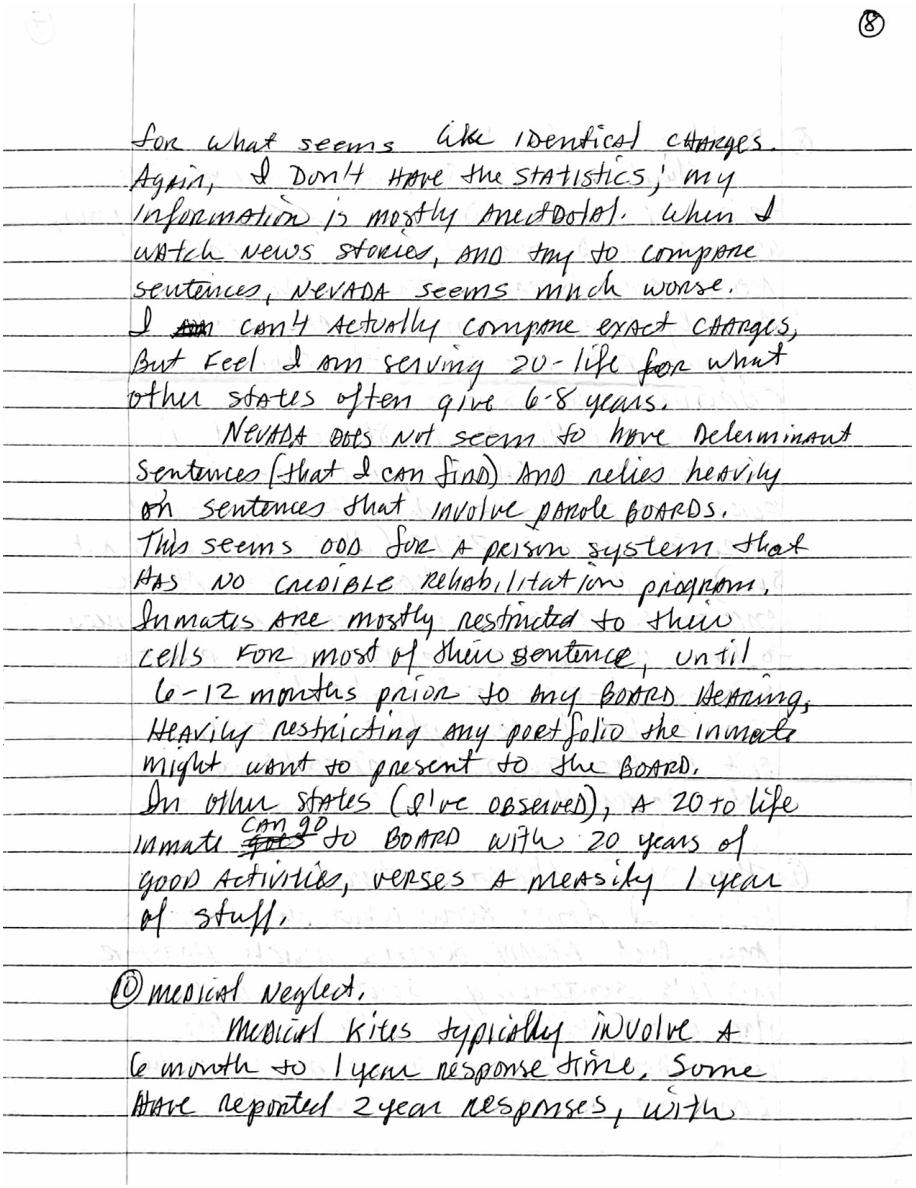 ⑧
for what seems like identical charges.
Again, I don't have the statistics; my
information is mostly anectdotal. When I
watch news stories, and try to compare
sentences, Nevada seems much worse.
I can't actually compare exact charges,
But feel I am serving 20-life for what
other states often give 6-8 years.
Nevada does not seem to have Determinant
sentences (that I can find) and relies heavily
on sentences that involve parole boards.
This seems odd for a prison system that
has no credible rehabilitation program.
Inmates are mostly restricted to their
cells for most of their sentence, until
6-12 months prior to any Board Hearing,
Heavily restricting any portfolio the inmate
might want to present to the Board.
In other states (I've observed), a 20 to life
inmate can go to Board with 20 years of
good activities, verses a measily 1 year
of stuff.
⑩ Medical Neglect.
Medical kites typically involve a
6 month to 1 year response time. Some
have reported 2 year responses, with